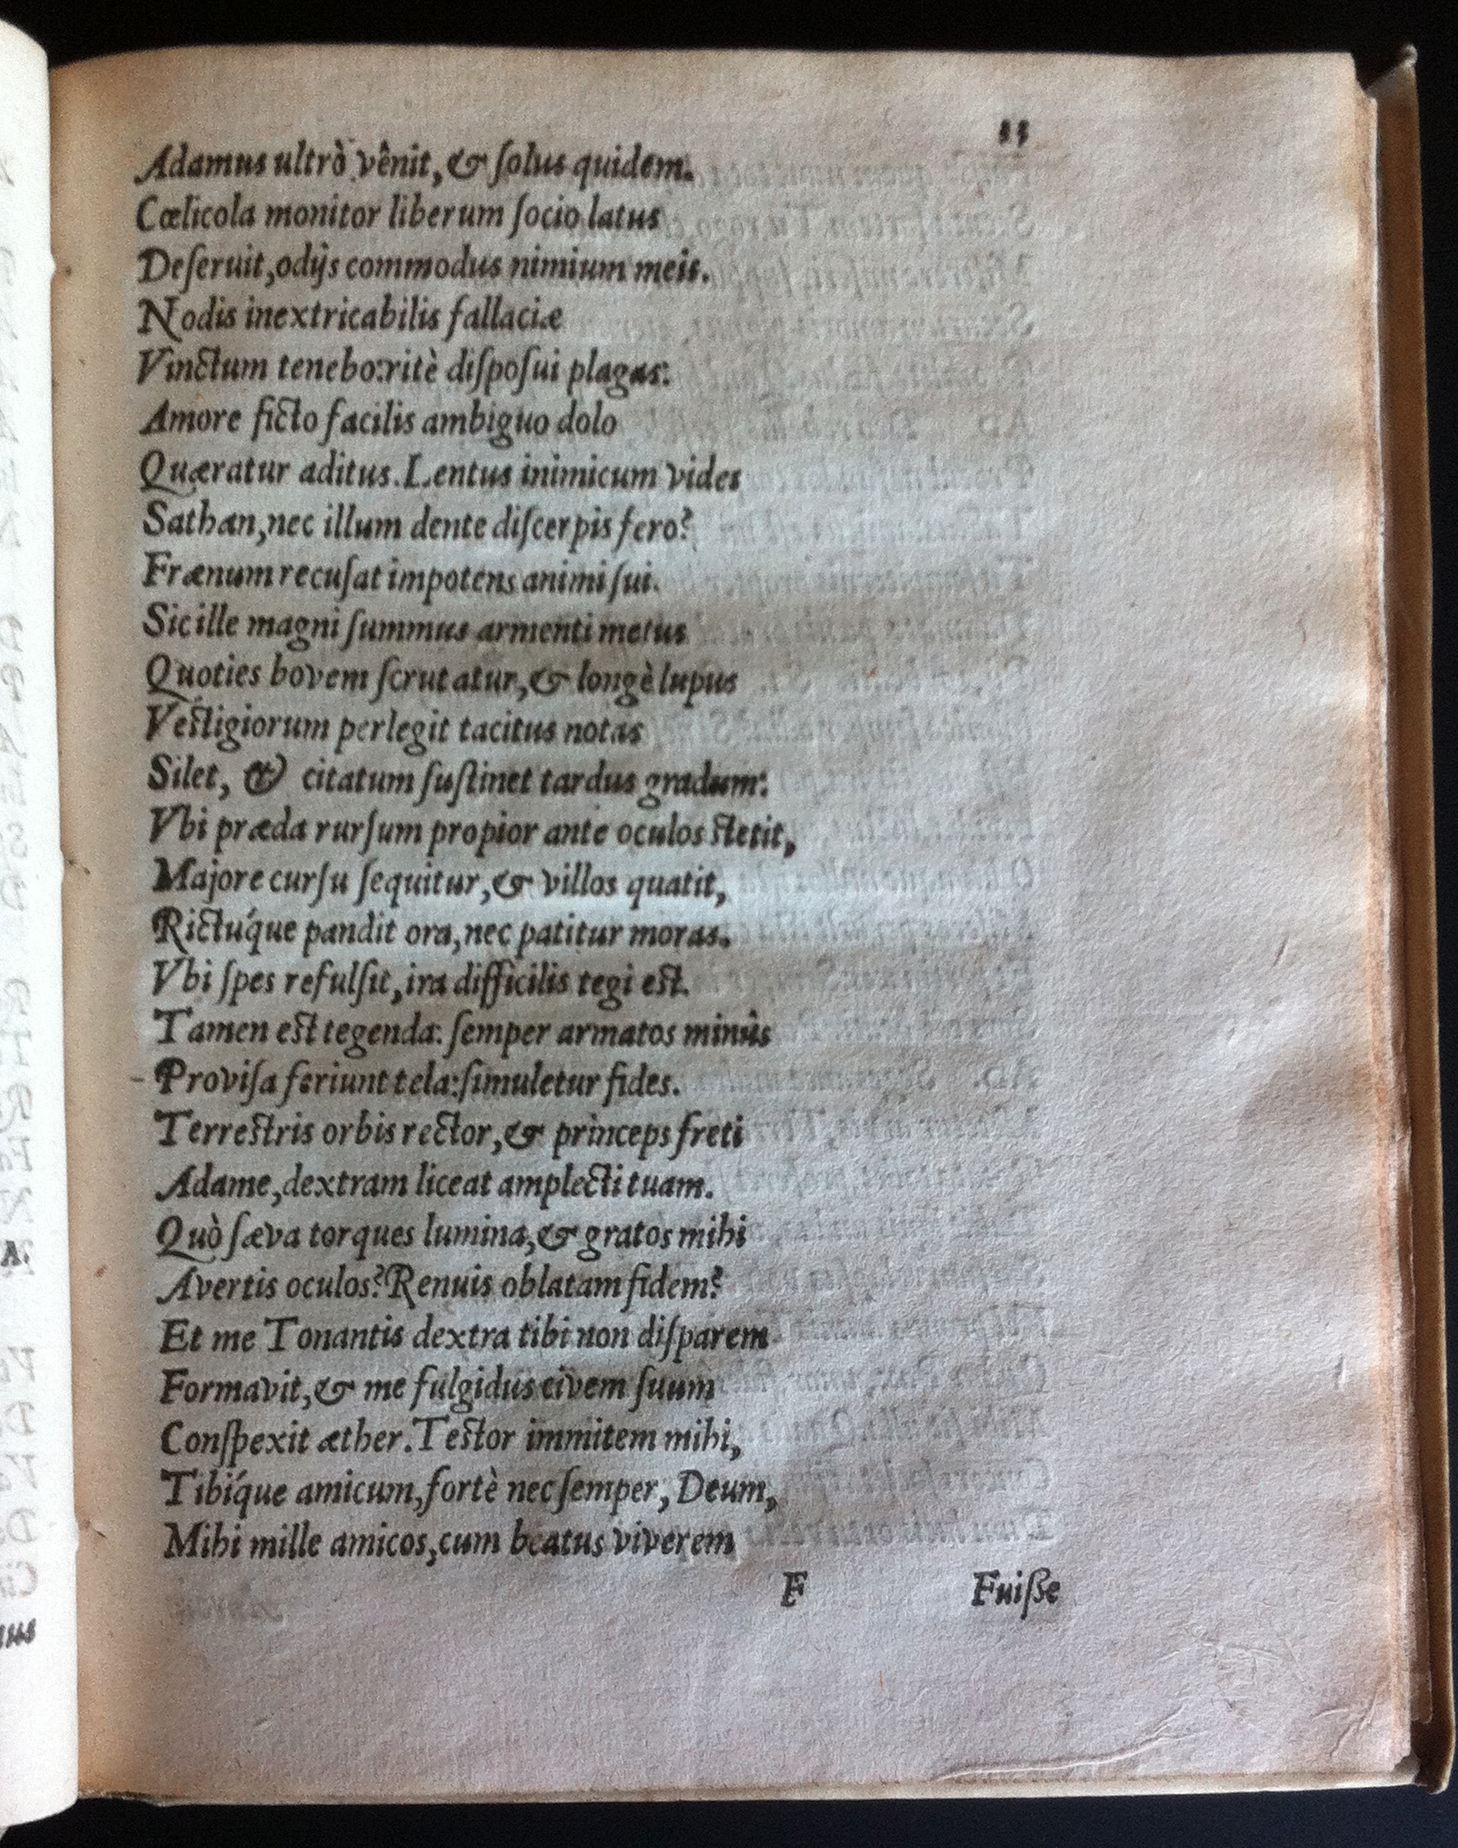 33
Adamus ultrò vênit, & ſolus quidem.
Cœlicola monitor liberum ſocio latus
Deſeruit, odijs commodus nimium meis.
Nodis inextricabilis fallaciæ
Vinctum tenebo: ritè diſpoſui plagas:
Amore ficto facilis ambiguo dolo
Quæratur aditus. Lentus inimicum vides
Sathan, nec illum dente diſcerpis fero?
Frænum recuſat impotens animi ſui.
Sic ille magni ſummus armenti metus
Quoties bovem ſcrutatur, & longè lupus
Veſtigiorum perlegit tacitus notas
Silet, & citatum ſuſtinet tardus gradum:
Vbi præda rurſum propior ante oculos ſtetit,
Majore curſu ſequitur, & villos quatit,
Rictúque pandit ora, nec patitur moras.
Vbi ſpes refulſit, ira difficilis tegi eſt.
Tamen eſt tegenda: ſemper armatos minùs
Proviſa feriunt tela: ſimuletur fides.
Terreſtris orbis rector, & prìnceps freti
Adame, dextram liceat amplecti tuam.
Quò ſæva torques lumina, & gratos mihi
Avertis oculos? Renuis oblatam fidem?
Et me Tonantis dextra tibi non diſparem
Formavit, & me fulgidus civem ſuum
Conſpexit æther. Teſtor immitem mihi,
Tibíque amicum, fortè nec ſemper, Deum,
Mihi mille amicos, cum beatus viverem
F Fuiſſe
A.